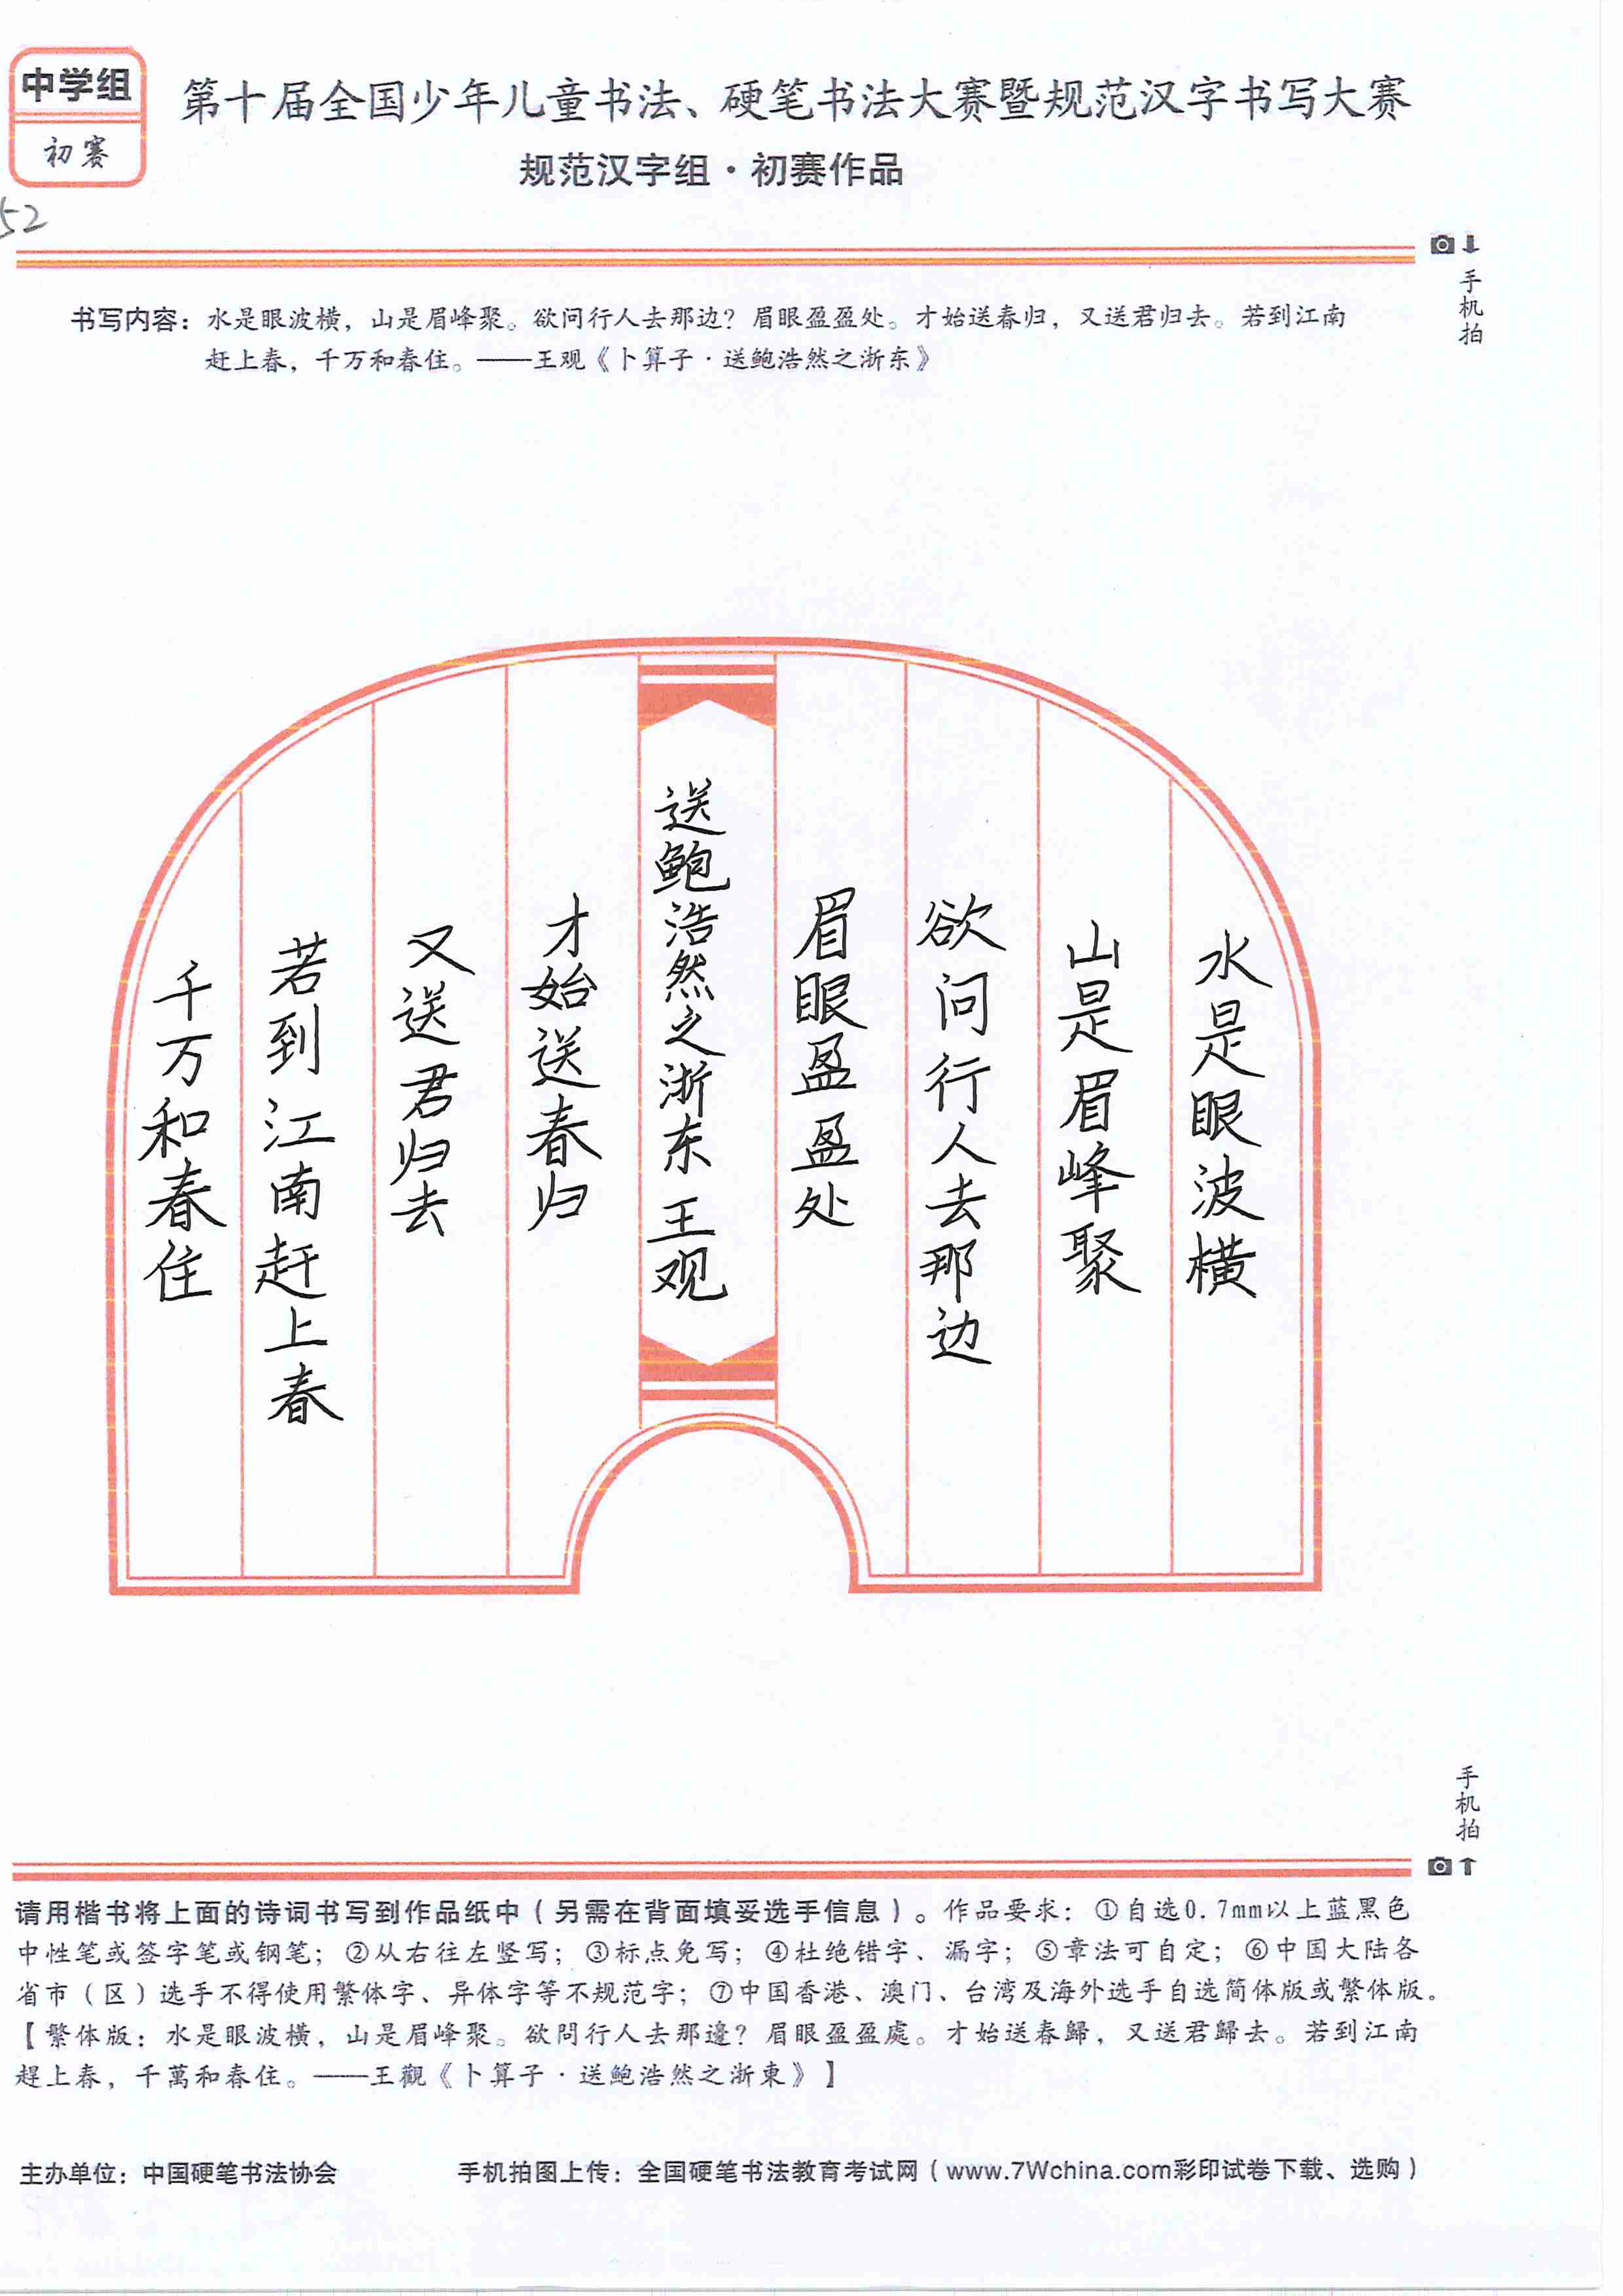 中学组
初赛
第十届全国少年儿童书法、硬笔书法大赛暨规范汉字书写大赛
规范汉字组·初赛作品
52
手机拍
书写内容：水是眼波横，山是眉峰聚。欲问行人去那边？眉眼盈盈处。才始送春归，又送君归去。若到江南
赶上春，千万和春住。——王观《卜算子·送鲍浩然之浙东》
水是眼波横
山是眉峰聚
欲问行人去那边
眉眼盈盈处
送鲍浩然之浙东 王观
才始送春归
又送君归去
若到江南赶上春
千万和春住
手机拍
请用楷书将上面的诗词书写到作品纸中（另需在背面填妥选手信息）。作品要求：①自选0.7mm以上蓝黑色
中性笔或签字笔或钢笔；②从右往左竖写；③标点免写；④杜绝错字、漏字；⑤章法可自定；⑥中国大陆各
省市（区）选手不得使用繁体字、异体字等不规范字；⑦中国香港、澳门、台湾及海外选手自选简体版或繁体版。
【繁体版：水是眼波橫，山是眉峰聚。欲問行人去那邊？眉眼盈盈處。才始送春歸，又送君歸去。若到江南
趕上春，千萬和春住。——王觀《卜算子·送鮑浩然之浙東》】
主办单位：中国硬笔书法协会 手机拍图上传：全国硬笔书法教育考试网（www.7Wchina.com彩印试卷下载、选购）